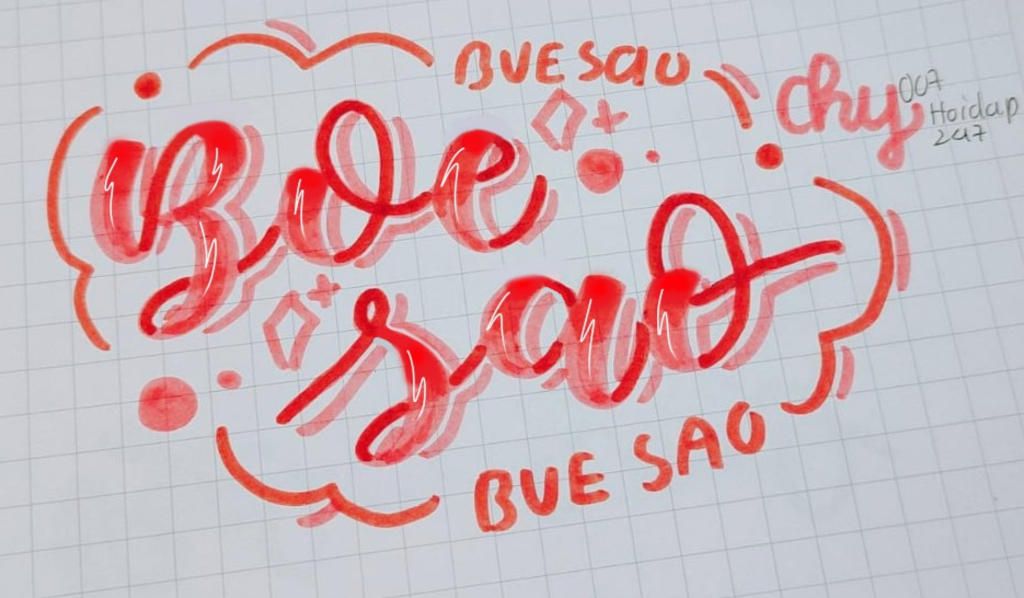 BVE SAO
chy007
Hoidap
247
Bve
sao
BVE SAO